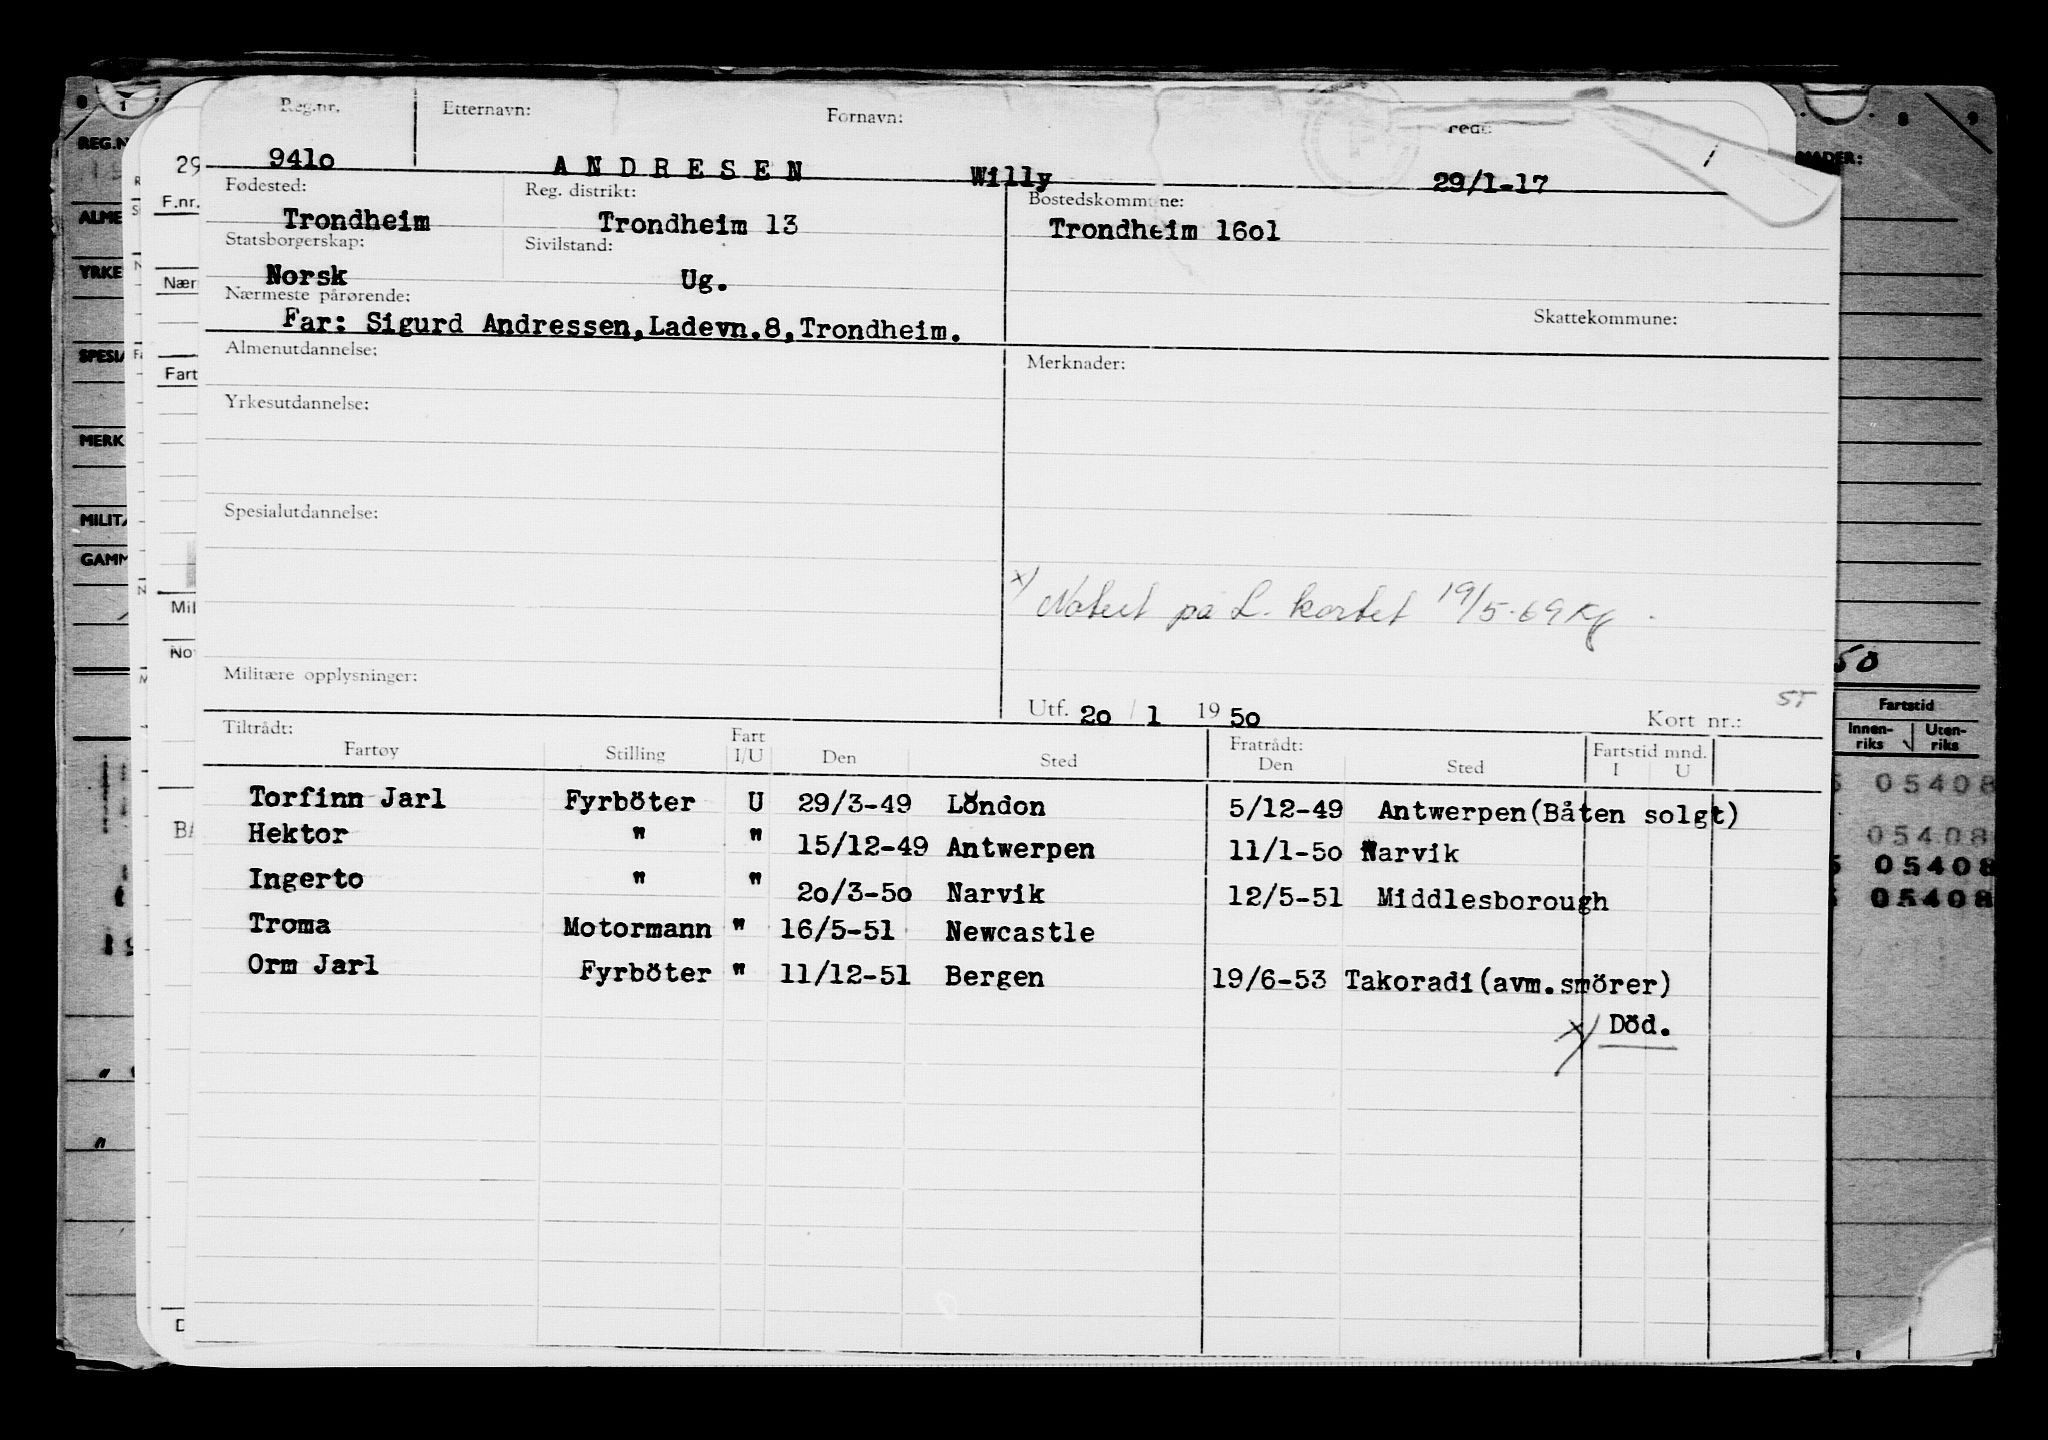 Reg.nr. Etternavn: Fornavn:
941o A N D R E S E N Willy 29/1-17
Fødested: Reg. distrikt: Bostedskommune:
Trondheim Trondheim 13 Trondheim 16o1
Statsborgerskap: Sivilstand:
Norsk Ug.
Nærmeste pårørende: Skattekommune:
Far: Sigurd Andressen,Ladevn.8,Trondheim.
Almenutdannelse: Merknader:
Yrkesutdannelse:
Spesialutdannelse:
x) Notert på L. kortet 19/5-69 Kg
Militære opplysninger:
Utf. 2o / 1 19 5o Kort nr.:
Tiltrådt: Fratrådt: Fartstid mnd.
Fartøy Stilling Fart I/U Den Sted Den Sted I U
Torfinn Jarl Fyrböter U 29/3-49 London 5/12-49 Antwerpen(Båten solgt)
Hektor " " 15/12-49 Antwerpen 11/1-5o Narvik
Ingerto " " 2o/3-5o Narvik 12/5-51 Middlesborough
Troma Motormann " 16/5-51 Newcastle
Orm Jarl Fyrböter " 11/12-51 Bergen 19/6-53 Takoradi(avm.smörer)
x) Död.
29
F.nr.
Fart
50
Fartstid
Innen-riks Uten-riks
05408
05408
05408
05408